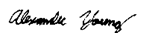 Alexander Young